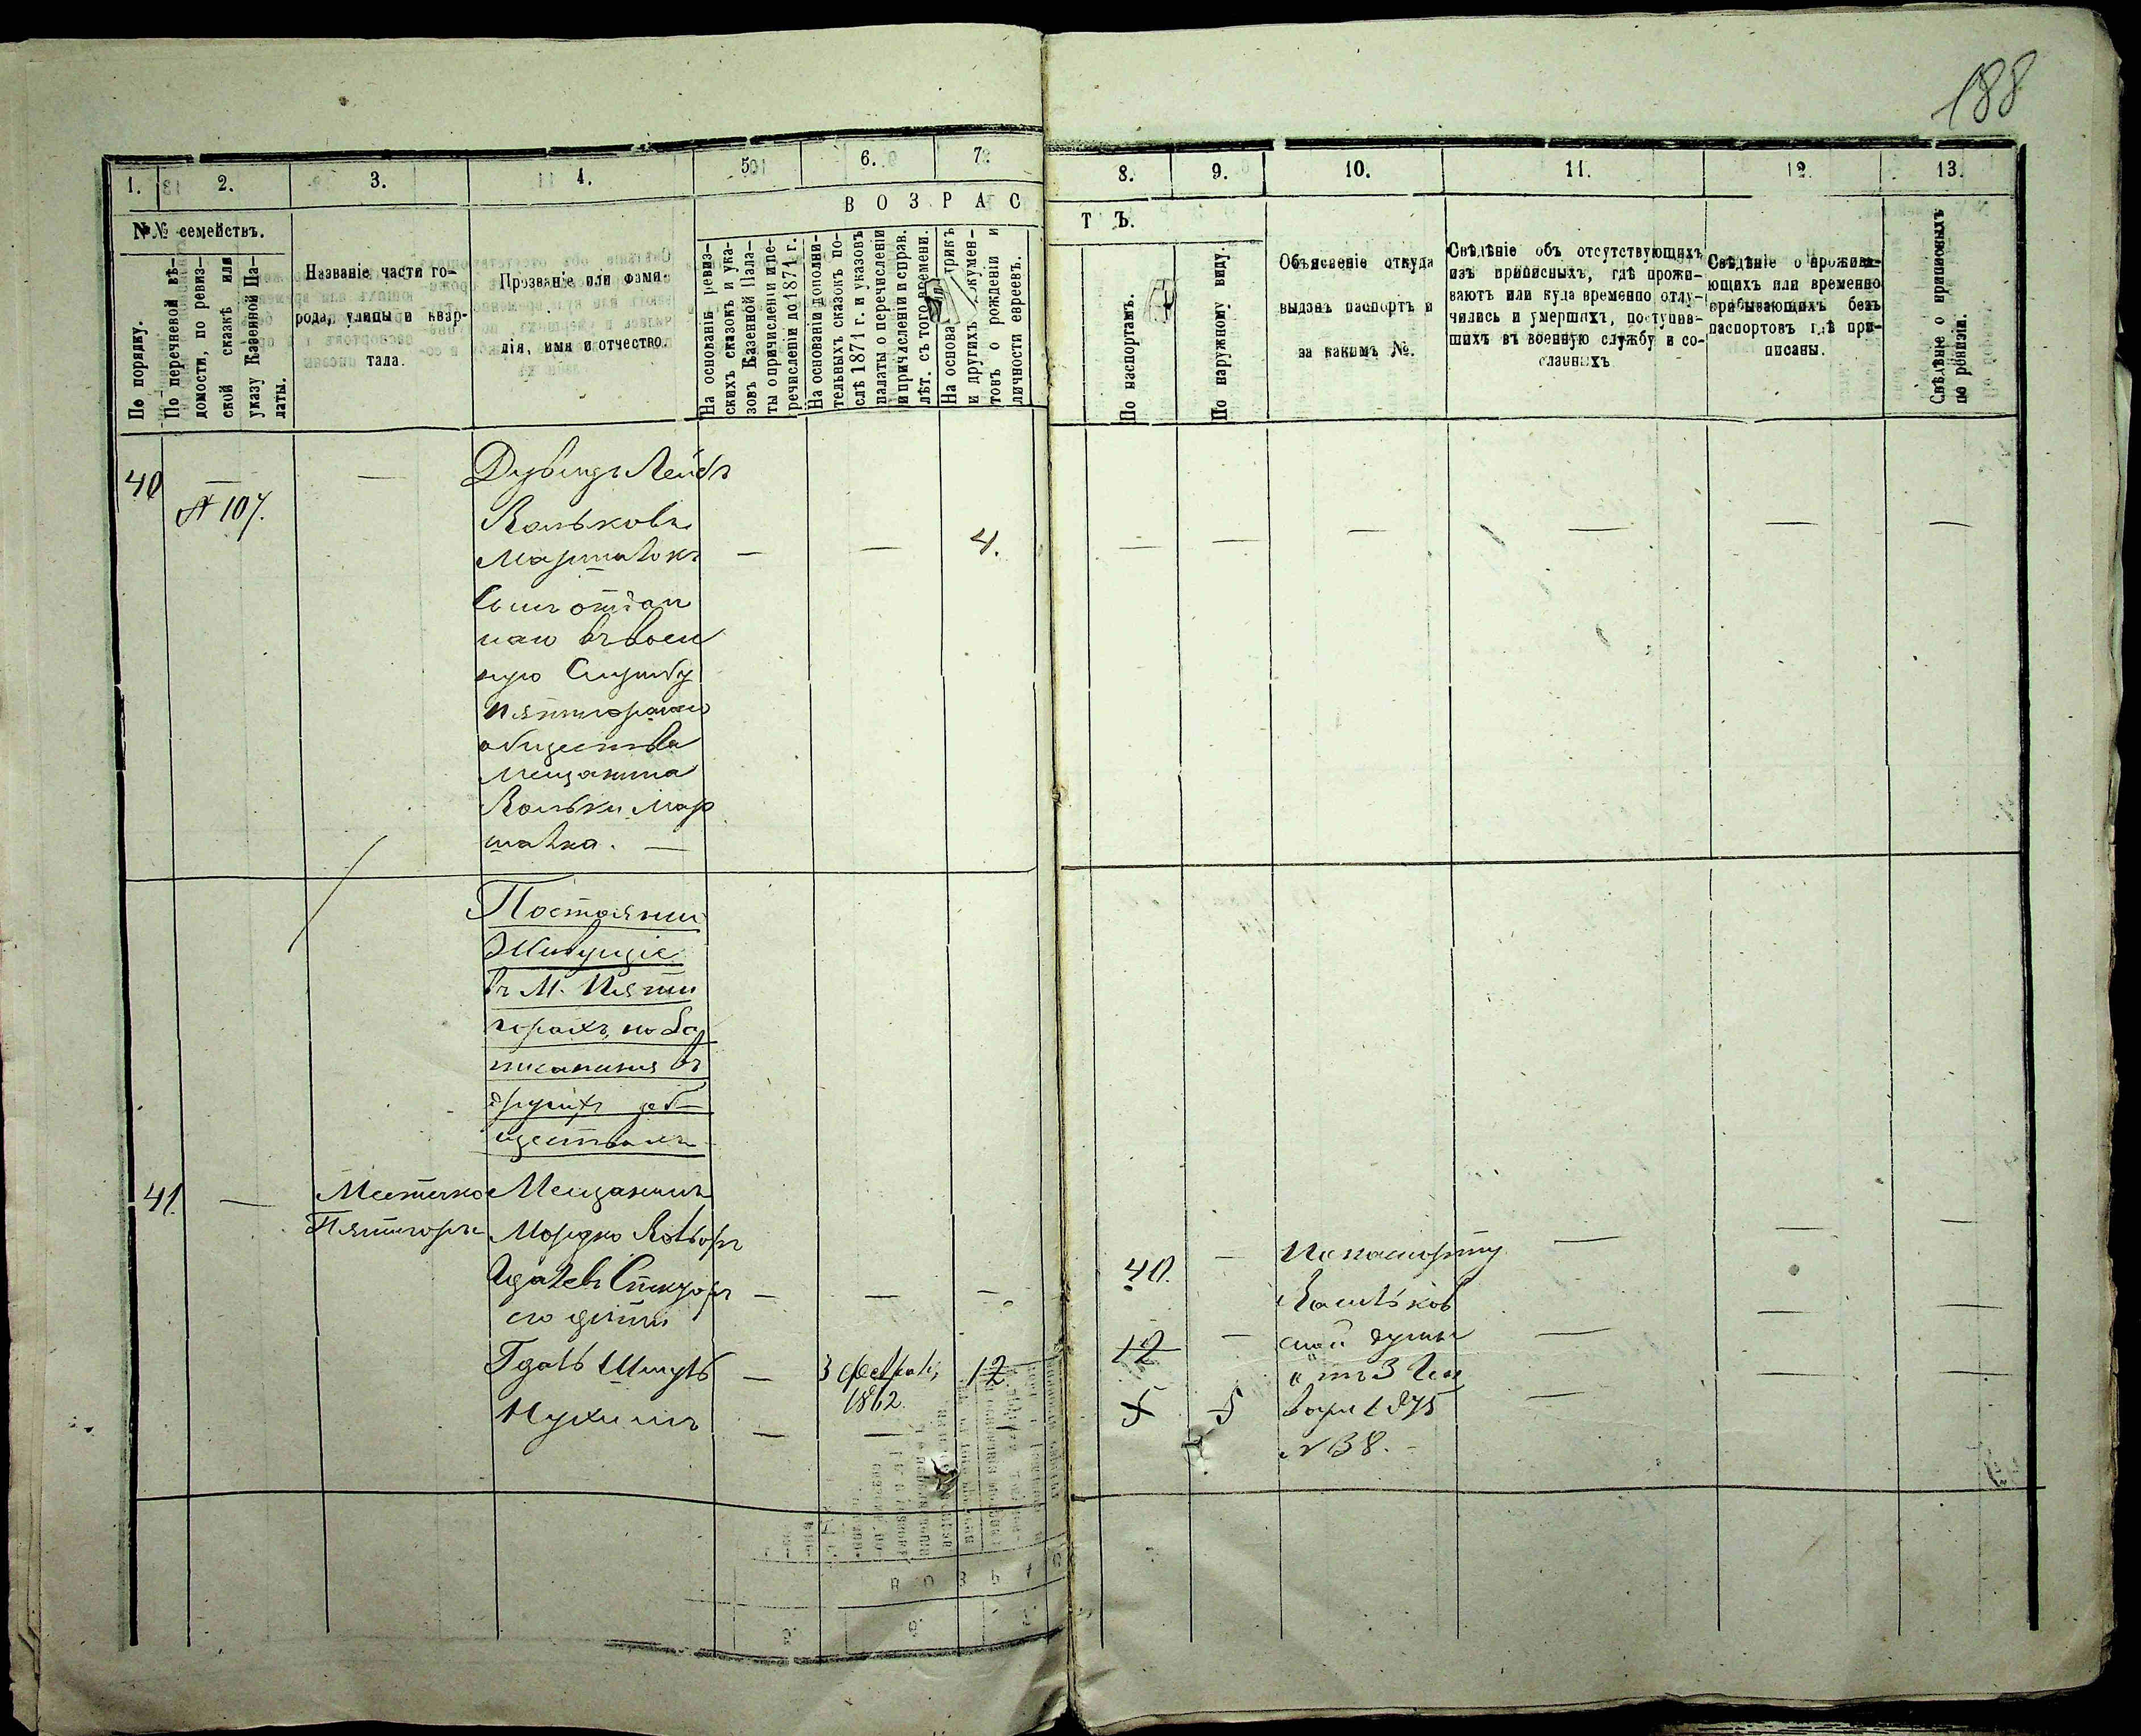 188
1. 2. 3. 4. 5. 6. 7. 8. 9. 10. 11. 12. 13.
№№ семействъ.
В О З Р А С Т Ъ.
По порядку.
По перечневой вѣ-
домости, по ревиз-
ской сказкѣ или
указу Казенной Па-
латы.
Названіе части го-
рода, улицы и квар-
тала.
Прозваніе или фами-
лія, имя и отчество.
На основаніи ревиз-
скихъ сказокъ и ука-
зовъ Казенной Пала-
ты о причисленіи и пе-
речисленіи до 1871 г.
На основаніи дополни-
тельныхъ сказокъ по-
слѣ 1871 г. и указовъ
палаты о перечисленіи
и причисленіи и справ.
лѣт. съ того времени.
На основа трикъ
и другихъ окумен-
товъ о рожденіи и
личности евреевъ.
По паспортамъ.
По наружному виду.
Объясненіе откуда
выданъ паспортъ и
за какимъ №.
Свѣдѣніе объ отсутствующихъ
изъ приписныхъ, гдѣ прожи-
ваютъ или куда временно отлу-
чились и умершихъ, поступив-
шихъ въ военную службу и со-
сланныхъ
Свѣдѣніе о прожива-
ющихъ или временно
пребывающихъ безъ
паспортовъ г,ѣ при-
писаны.
Свѣдѣніе о приписныхъ
по ревизіи.
40 — № 107. — Дувидъ Лейбъ
Вольковъ
Маршалокъ — — 4. — — — — — —
Сынъ отдан
наго въ воен
ную Службу
Пятигорскаго
общества
Мещанина
Вольки Мар
шалка. —
Постоянно
Живущіе
въ М. Пяти
горахъ, но за
писанные въ
другихъ об-
ществахъ
41. — Местечко Мещанинъ
Пятигоры Мордко
Спекторъ — — — 40. — По паспорту — — —
его дѣти Васильков
Шмуль — 3 Феврал, 12 12 — ской думы — — —
1862. отъ 3 Ян
Нухимъ — — — 5 5 варя 1875 — — —
№ 38. —